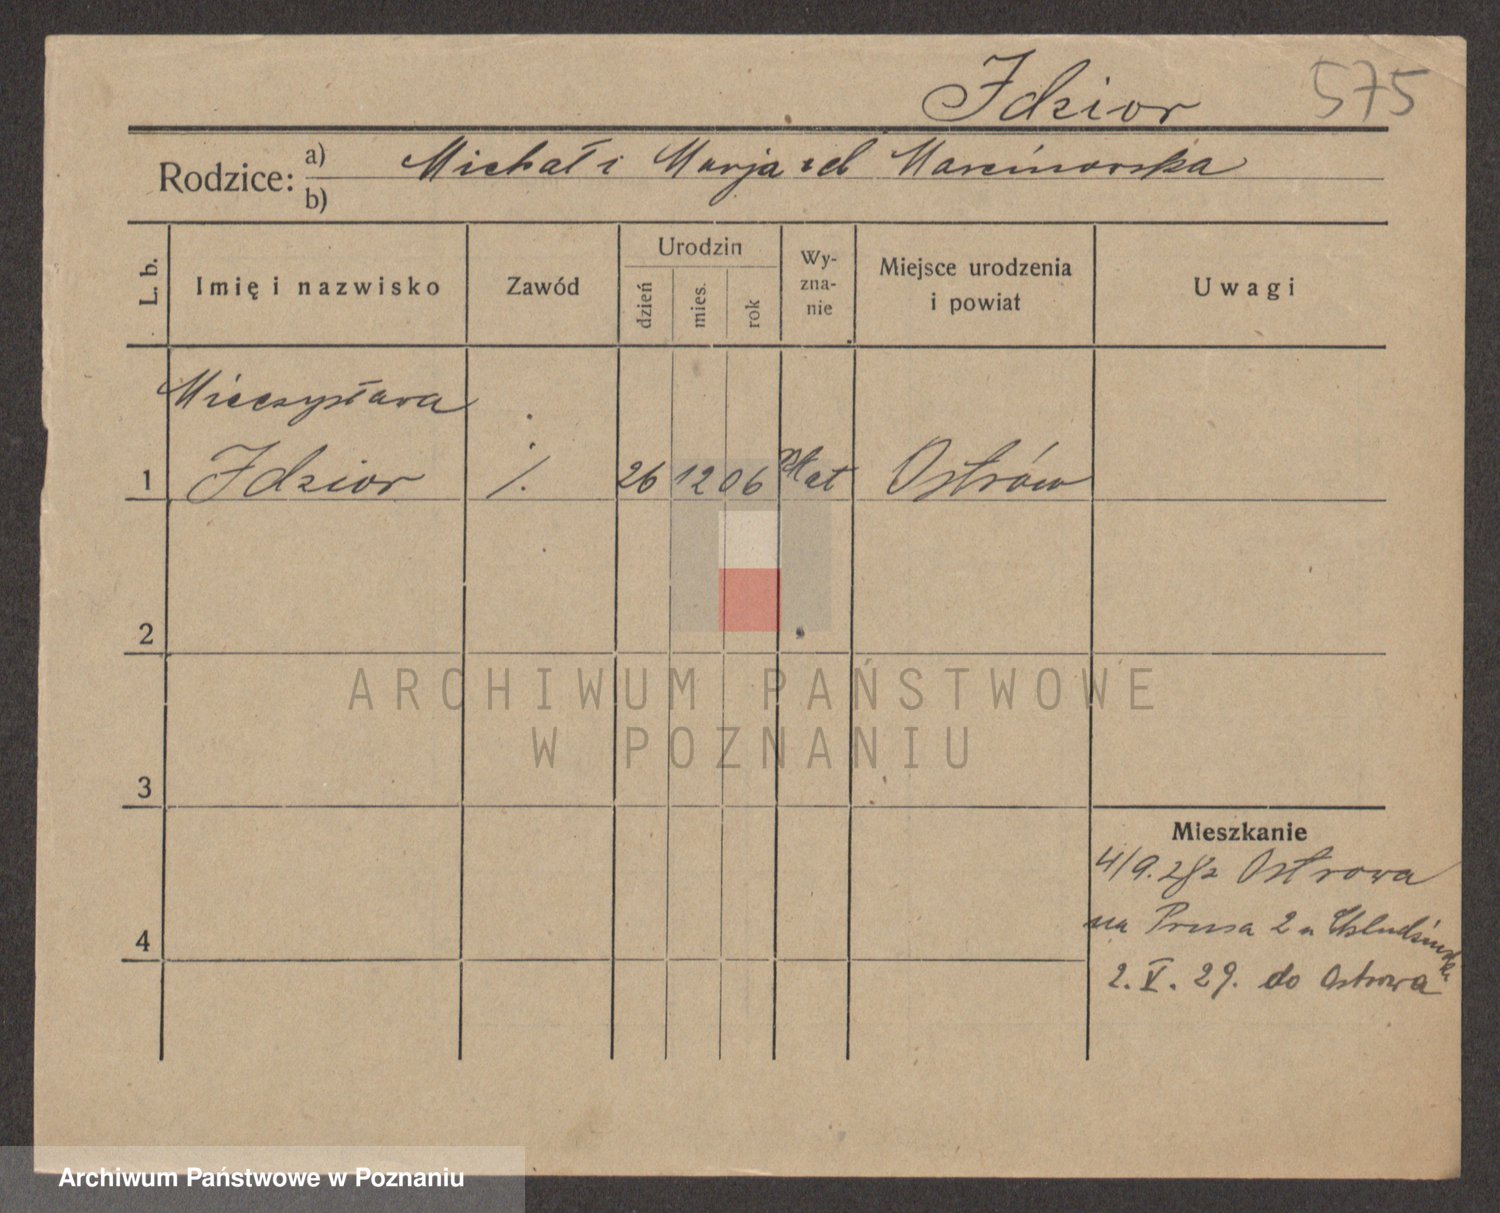 Idzior 575
Rodzice: a) Michał i Marja zd Marcinowska
b)
L. b. Imię i nazwisko Zawód Urodzin dzień mies. rok Wy-zna-nie Miejsce urodzenia i powiat Uwagi
Mieczysława
1 Idzior ·/. 26 12 06 Rkat Ostrów
2
ARCHIWUM PAŃSTWOWE
W POZNANIU
3
Mieszkanie
4/9. 28 z Ostrowa
na Prusa 2 u
4
2. V. 29. do Ostrowa
Archiwum Państwowe w Poznaniu